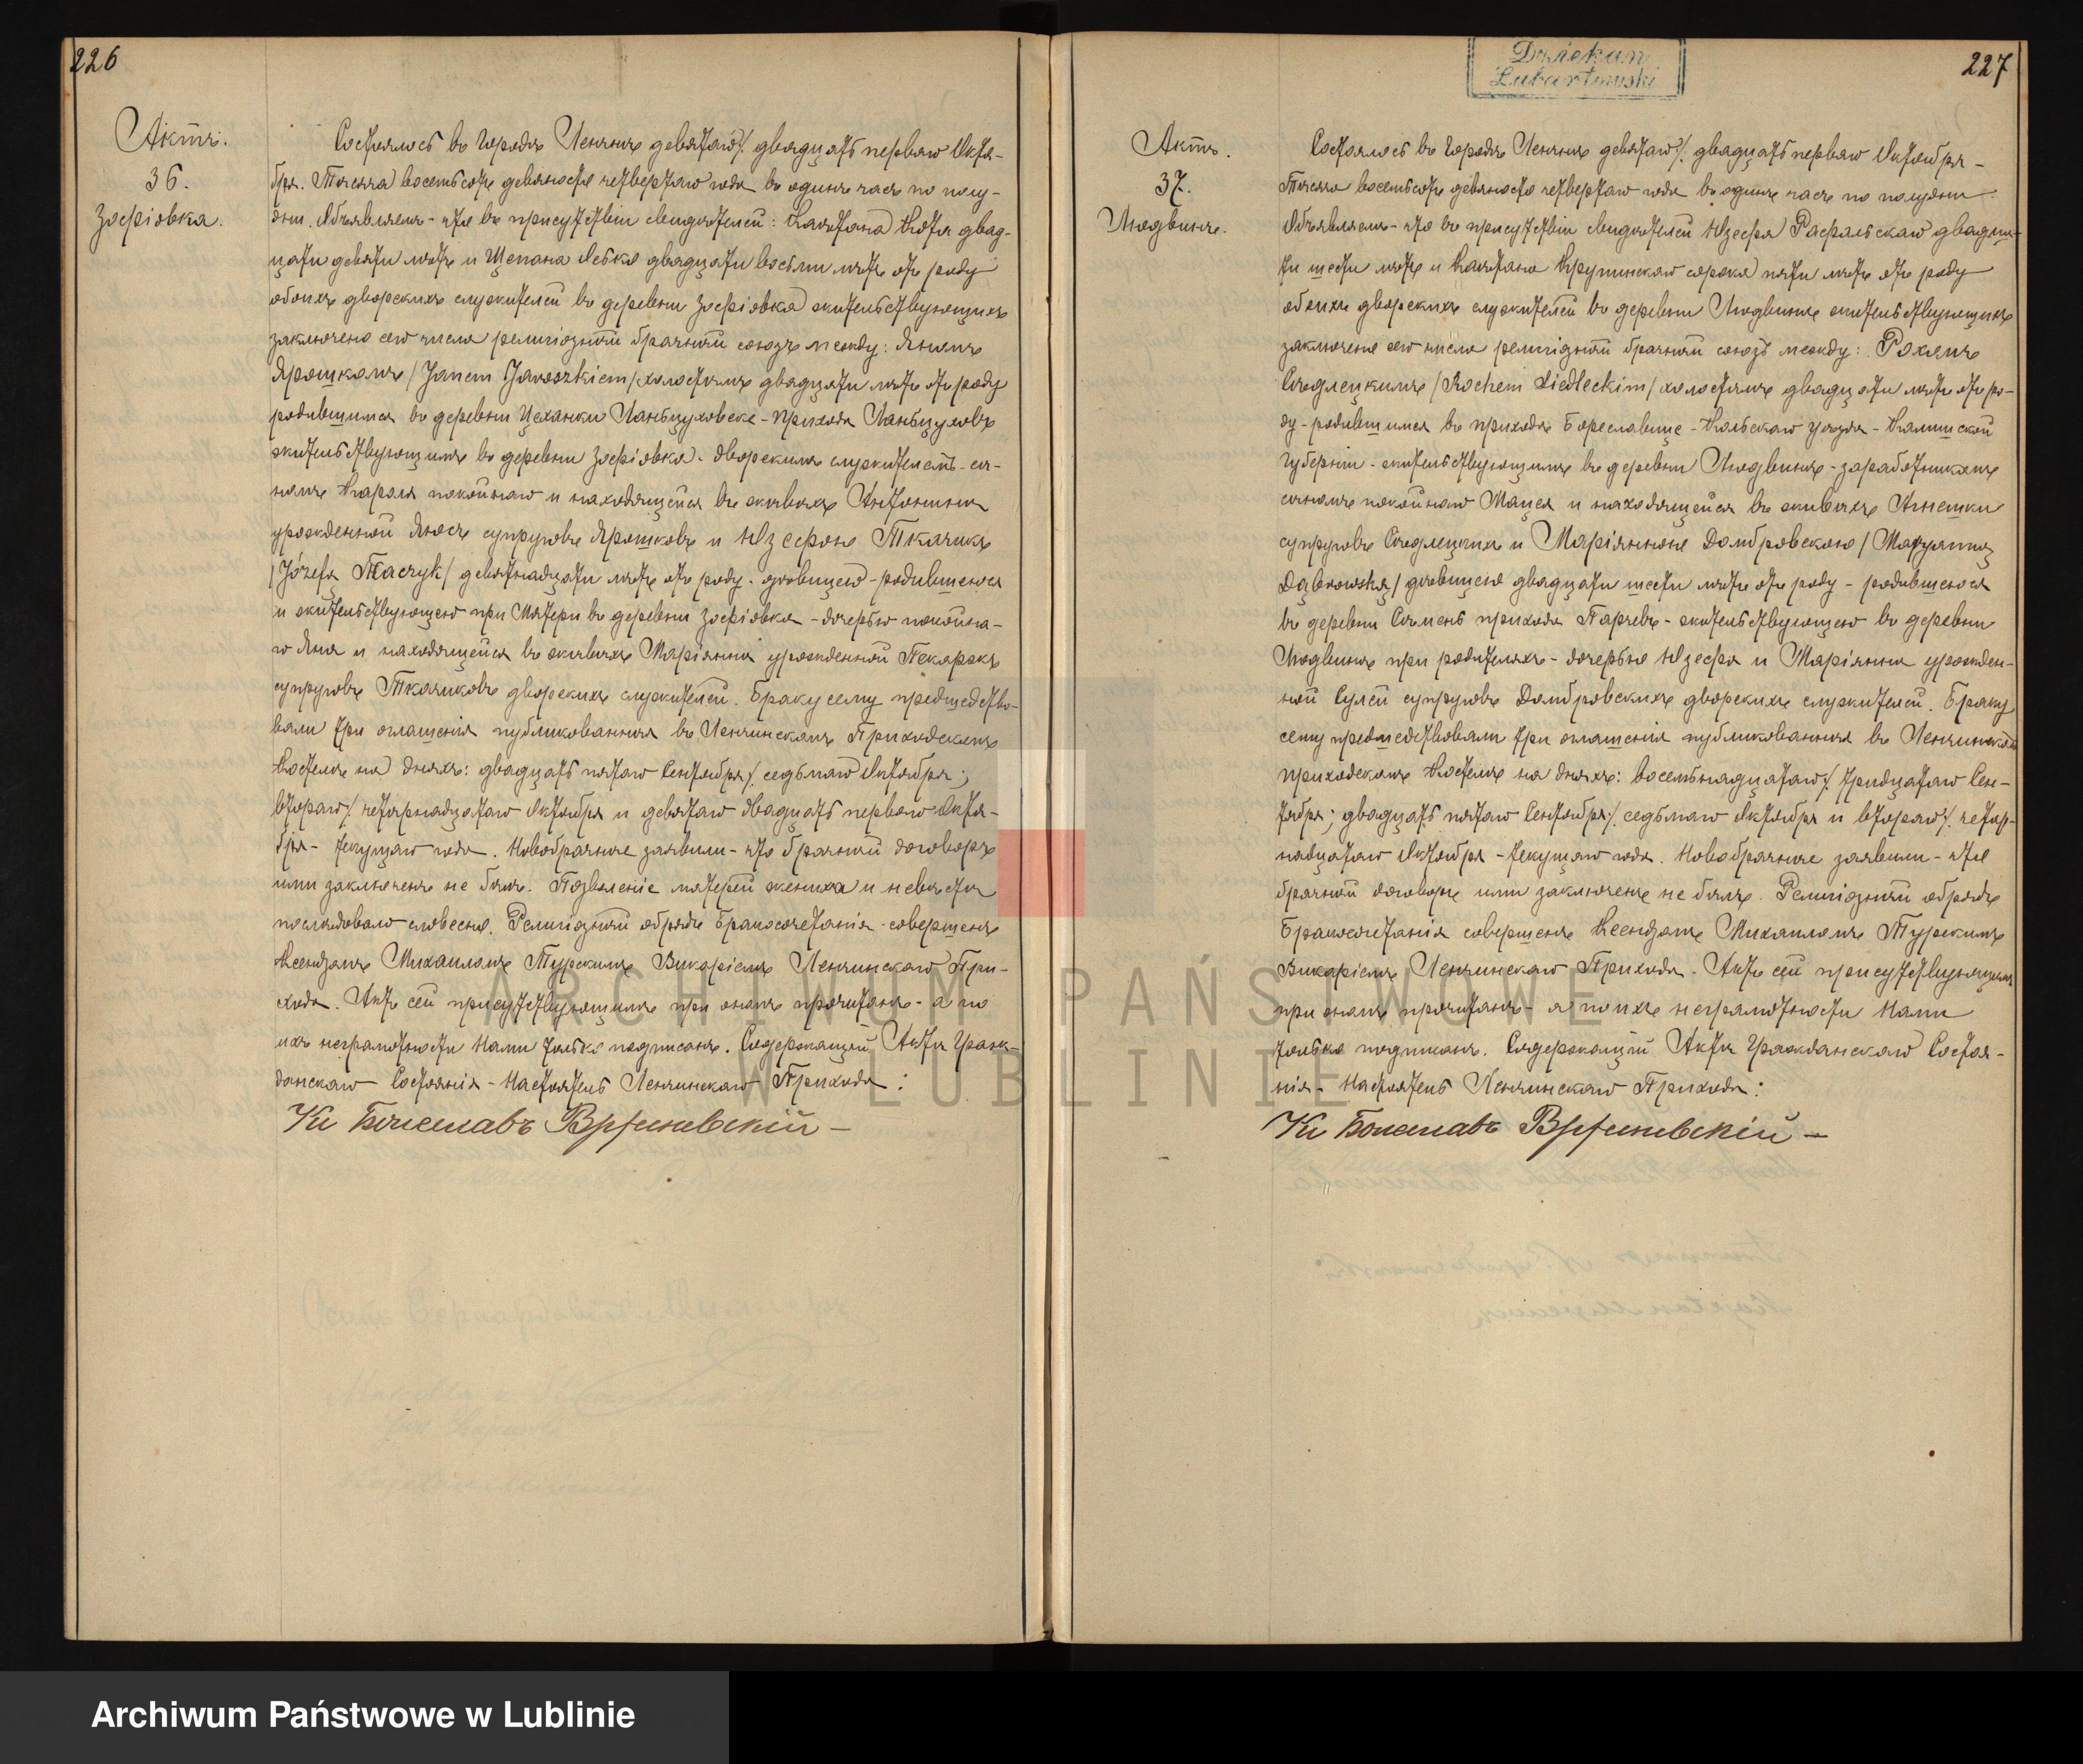 226
Актъ.
36.
Зофіовка.
Состоялось въ городѣ Ленчнѣ девятаго/. двадцать перваго Октя-
бря. Тысяча восемьсотъ девяносто четвертаго года въ одинъ часъ по полу-
дни. Объявляемъ - что въ присутствіи свидѣтелей: Каэтана Котя двад-
цати девяти лѣтъ и Щепана Лесько двадцати восьми лѣтъ отъ роду
обоихъ дворскихъ служителей въ деревни Зофіовка жительствующихъ
заключено сего числа религіозный брачный союзъ между: Яномъ
Ярошкомъ /Janem Jaroszkiem/ холостымъ двадцати лѣтъ отъ роду
родившимся въ деревни Цеханки Ланьцуховске - прихода Ланьцуховъ
жительствующимъ въ деревни Зофіовка - дворскимъ служителемъ - сы-
номъ Кароля покойнаго и находящейся въ живыхъ Антонины
урожденной Люсъ супруговъ Ярошковъ и Юзефою Ткачикъ
/Józefą Tkaczyk/ девятнадцати лѣтъ отъ роду - дѣвицею - родившеюся
и жительствующею при Матери въ деревни Зофіовка - дочерью покойна-
го Яна и находящейся въ живыхъ Маріянны урожденной Пекарскъ
супруговъ Ткачиковъ дворскихъ служителей. Браку сему предшедство-
вали три оглашенія публикованныя въ Ленчинскомъ Приходскомъ
Костелѣ на дняхъ: двадцать пятаго Сентября/. седьмаго Октября;
втораго/. четырнадцатаго Октября и девятаго двадцать перваго Октя-
бря - текущаго года. Новобрачные заявили - что брачный договоръ
ими заключенъ не былъ. Позволеніе матерей жениха и невѣсты
послѣдовало словесно. Религіозный обрядъ Бракосочетанія - совершенъ
Ксендзомъ Михаиломъ Турскимъ Викаріемъ Ленчинскаго При-
хода. Актъ сей присутствующимъ при ономъ прочитанъ - а по
ихъ неграмотности Нами только подписанъ. Содержащій Акты Граж-
данскаго Состоянія - Настоятель Ленчинскаго Прихода:
Кс Болеславъ Вртеневскій -
Dziekan
Lubartowski
227
Актъ.
37.
Людвинъ.
Состоялось въ городѣ Ленчнѣ девятаго/. двадцать перваго Октября -
Тысяча восемьсотъ девяносто четвертаго года въ одинъ часъ по полудни
Объявляемъ - что въ присутствіи свидѣтелей Юзефа Рафальскаго двадца-
ти шести лѣтъ и Каэтана Крупинскаго сорока пяти лѣтъ отъ роду
обоихъ дворскихъ служителей въ деревни Людвинъ жительствующихъ
заключено сего числа религіозный брачный союзъ между: Рохомъ
Сѣдлецкимъ /Rochem Siedleckim/ холостымъ двадцати лѣтъ отъ ро-
ду - родившимся въ приходѣ Бореславице - Кольскаго Уѣзда - Калишской
Губерніи - жительствующимъ въ деревни Людвинъ - заработникомъ
сыномъ покойнаго Мацея и находящейся въ живыхъ Агнешки
супруговъ Сѣдлецкихъ и Маріянною Домбровскою /Maryanną
Dąbrowską/ дѣвицею двадцати шести лѣтъ отъ роду - родившеюся
въ деревни Сѣмень прихода Парчевъ - жительствующею въ деревни
Людвинъ при родителяхъ - дочерью Юзефа и Маріянны урожден-
ной Сулей супруговъ Домбровскихъ дворскихъ служителей. Браку
сему предшедствовали три оглашенія публикованныя въ Ленчинскомъ
приходскомъ Костелѣ на дняхъ: восемьнадцатаго/. тридцатаго Сен-
тября; двадцать пятаго Сентября/. седьмаго Октября и втораго/. четыр-
надцатаго Октября - текущаго года. Новобрачные заявили - что
брачный договоръ ими заключенъ не былъ. Религіозный обрядъ
Бракосочетанія совершенъ Ксендзомъ Михаиломъ Турскимъ
Викаріемъ Ленчинскаго Прихода. Актъ сей присутствующимъ
при ономъ прочитанъ - а по ихъ неграмотности Нами
только подписанъ. Содержащій Акты Гражданскаго Состоя-
нія - Настоятель Ленчинскаго Прихода:
Кс Болеславъ Вртеневскій -
ARCHIWUM PAŃSTWOWE
W LUBLINIE
Archiwum Państwowe w Lublinie